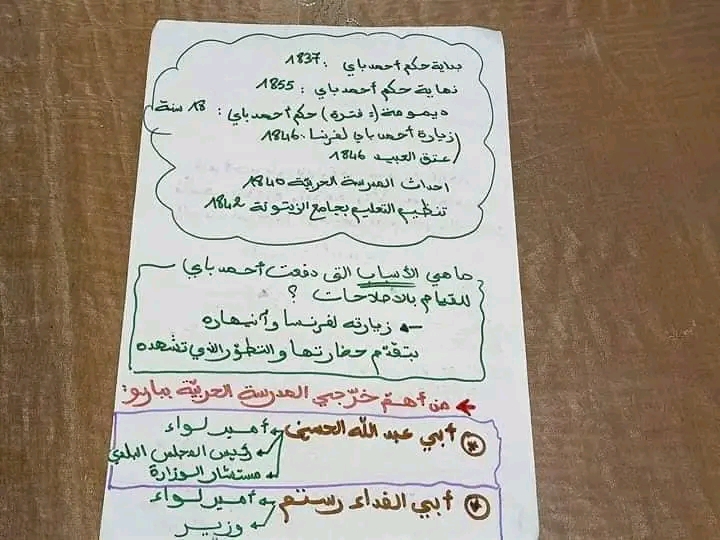 بداية حكم أحمد باي : 1837
نهاية حكم أحمد باي : 1855
ديمومة (= فترة) حكم أحمد باي : 18 سنة
زيارة أحمد باي لفرنسا : 1846
عتق العبيد 1846
احداث المدرسة الحربيّة 1840
تنظيم التعليم بجامع الزيتونة 1842
ما هي الأسباب التي دفعت أحمد باي
للقيام بالاصلاحات ؟
زيارته لفرنسا وأنبهاره
بتقدّم حضارتها والتطوّر الذي تشهده
من أهمّ خرّجي المدرسة الحربيّة بباردو :
أبي عبد الله الحسين
أمير لواء
رئيس المجلس البلدي
مستشار الوزارة
أبي الفداء رستم
أمير لواء
وزير